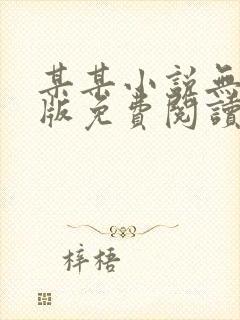 某某小説無
版免費閱讀
梓梧